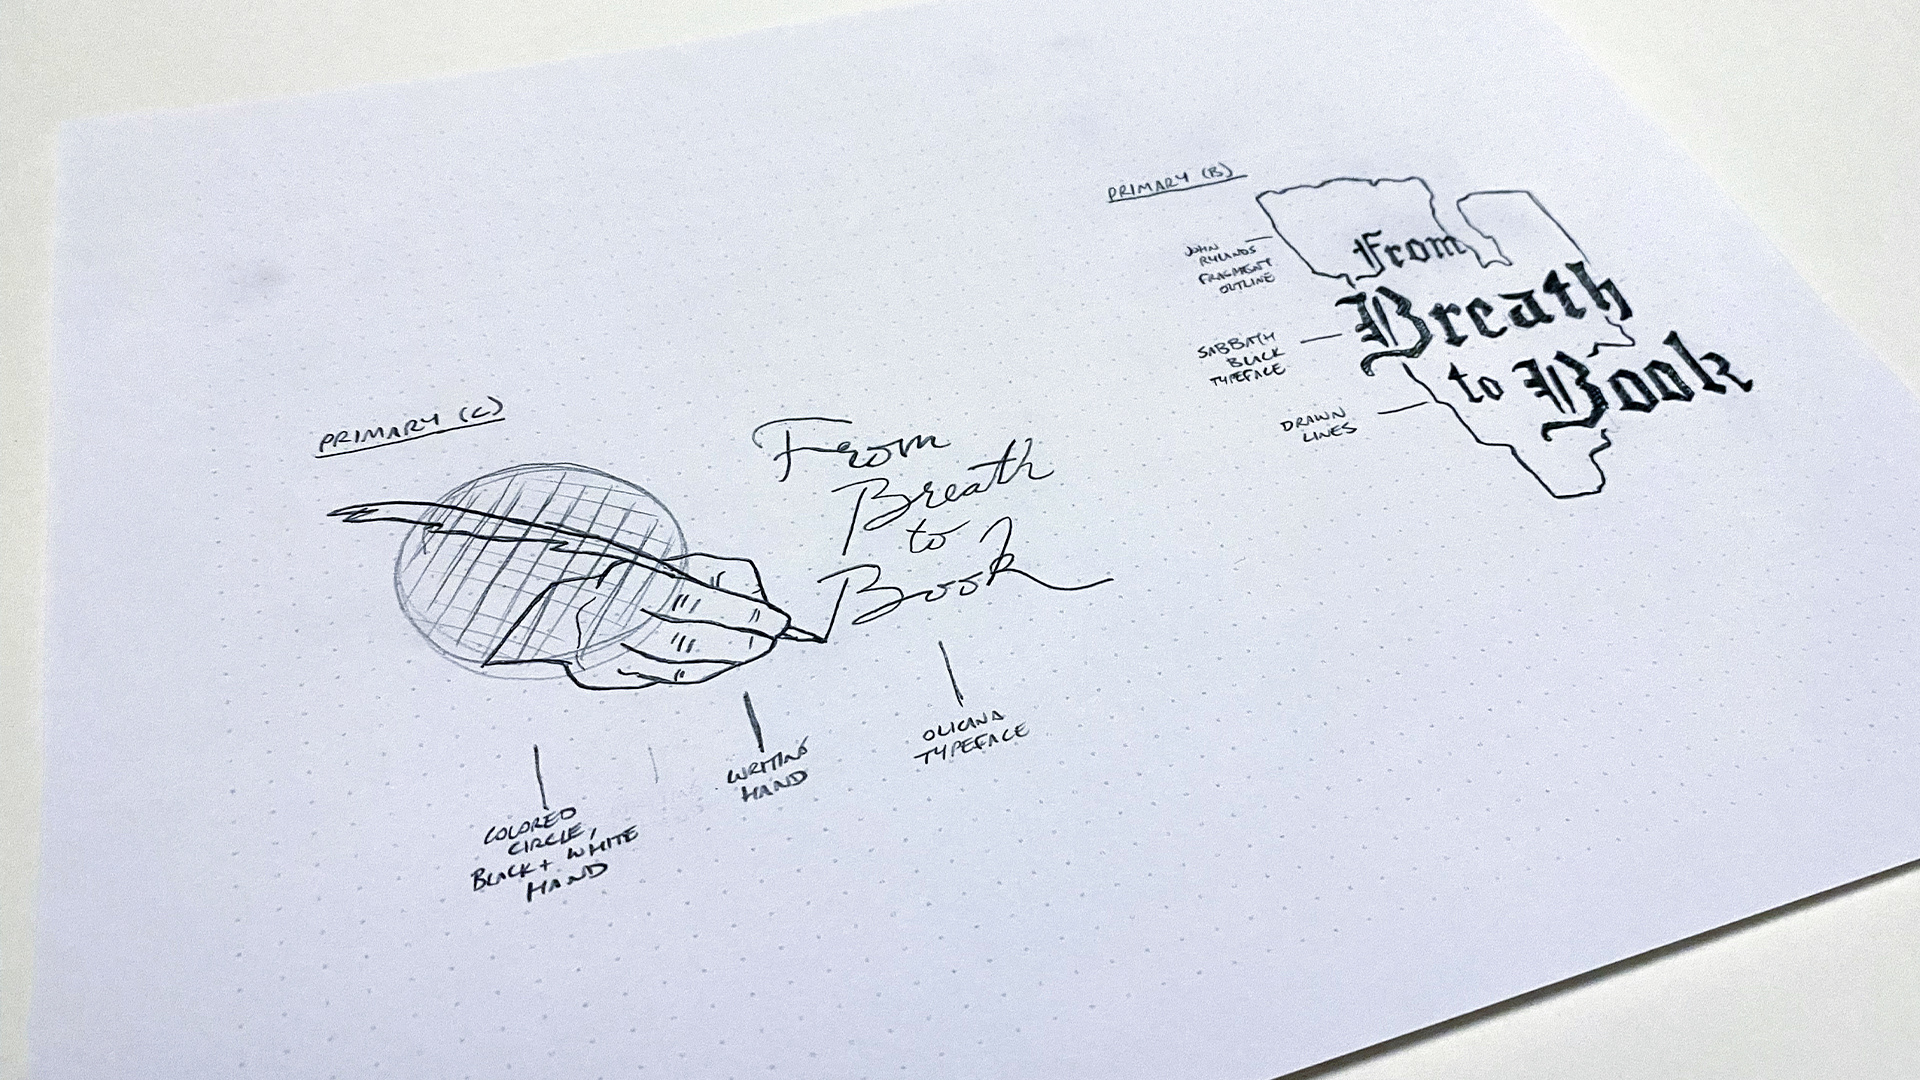 PRIMARY (B)
JOHN
RYLANDS
FRAGMENT
OUTLINE
SABBATH
BLACK
TYPEFACE
DRAWN
LINES
From
Breath
to Book
PRIMARY (C)
From
Breath
to
Book
COLORED
CIRCLE,
BLACK + WHITE
HAND
WRITING
HAND
OLICANA
TYPEFACE